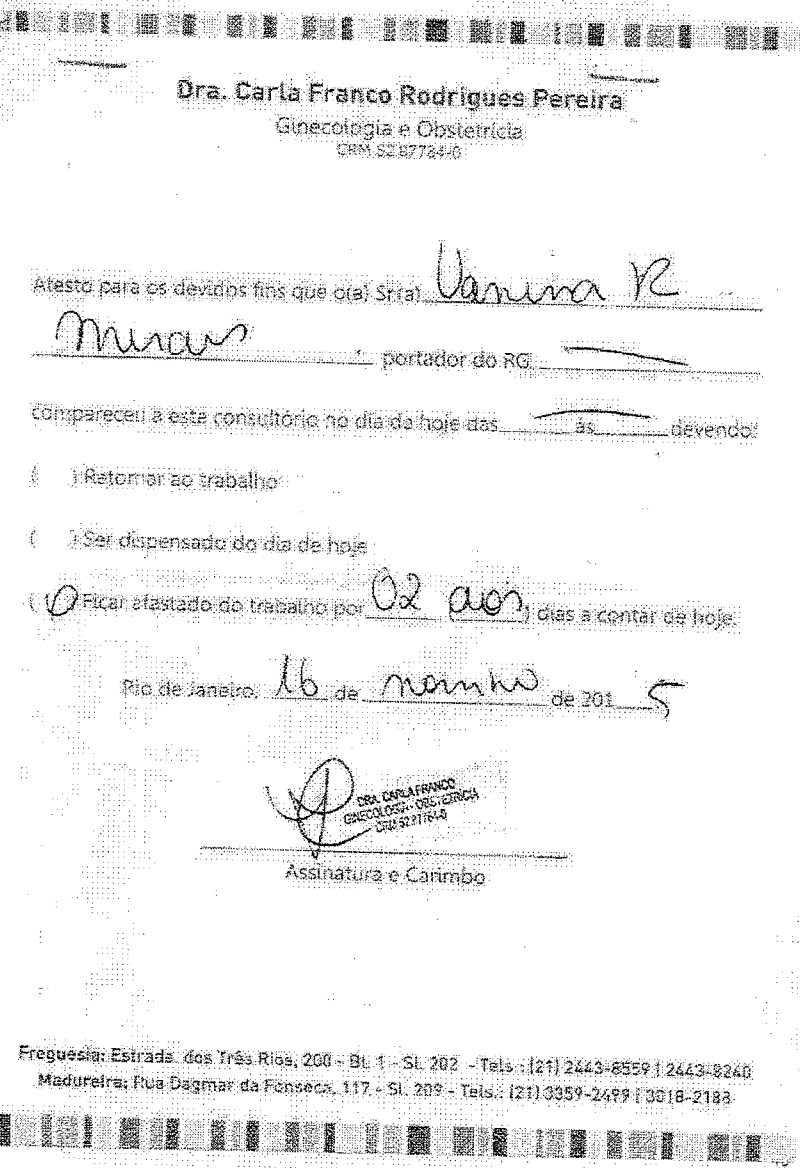 Dra. Carla Franco Rodrigues Pereira
Ginecologia e Obstetrícia
CRM 52.87764-0
Atesto para os devidos fins que o(a) Sr(a) Vanina R
portador do RG
compareceu a este consultório no dia de hoje das ____ às ____ devendo:
( ) Retornar ao trabalho
( ) Ser dispensado do dia de hoje
( ) Ficar afastado do trabalho por 02 ( ) dias a contar de hoje.
Rio de Janeiro, 16 de de 2015
DRA. CARLA FRANCO
GINECOLOGIA - OBSTETRÍCIA
CRM 52.87764-0
Assinatura e Carimbo
Freguesia: Estrada dos Três Rios, 200 - Bl. 1 - Sl. 202 - Tels.: (21) 2443-8559 | 2443-8240
Madureira: Rua Dagmar da Fonseca, 117 - Sl. 209 - Tels.: (21) 3359-2499 | 3018-2188